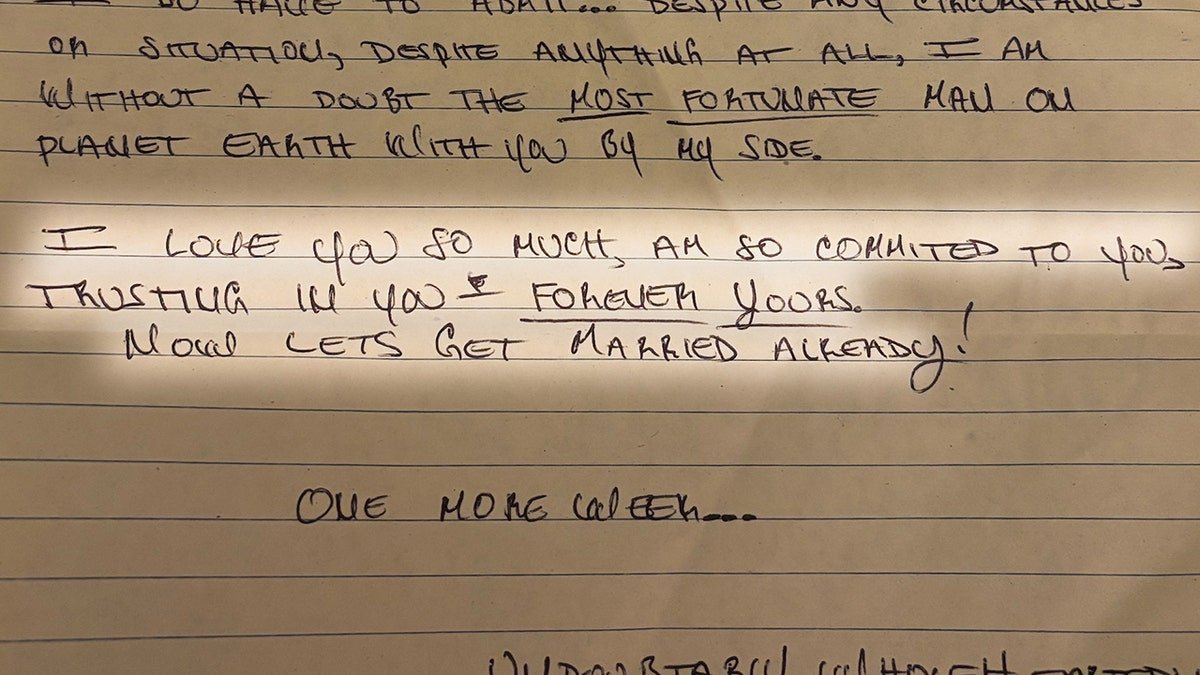 DO HAVE TO ADMIT... DESPITE ANY CIRCUMSTANCES
OR SITUATION, DESPITE ANYTHING AT ALL, I AM
WITHOUT A DOUBT THE MOST FORTUNATE MAN ON
PLANET EARTH WITH YOU BY MY SIDE.
I LOVE YOU SO MUCH, AM SO COMMITED TO YOU,
TRUSTING IN YOU & FOREVER YOURS.
NOW LETS GET MARRIED ALREADY!
ONE MORE WEEK...